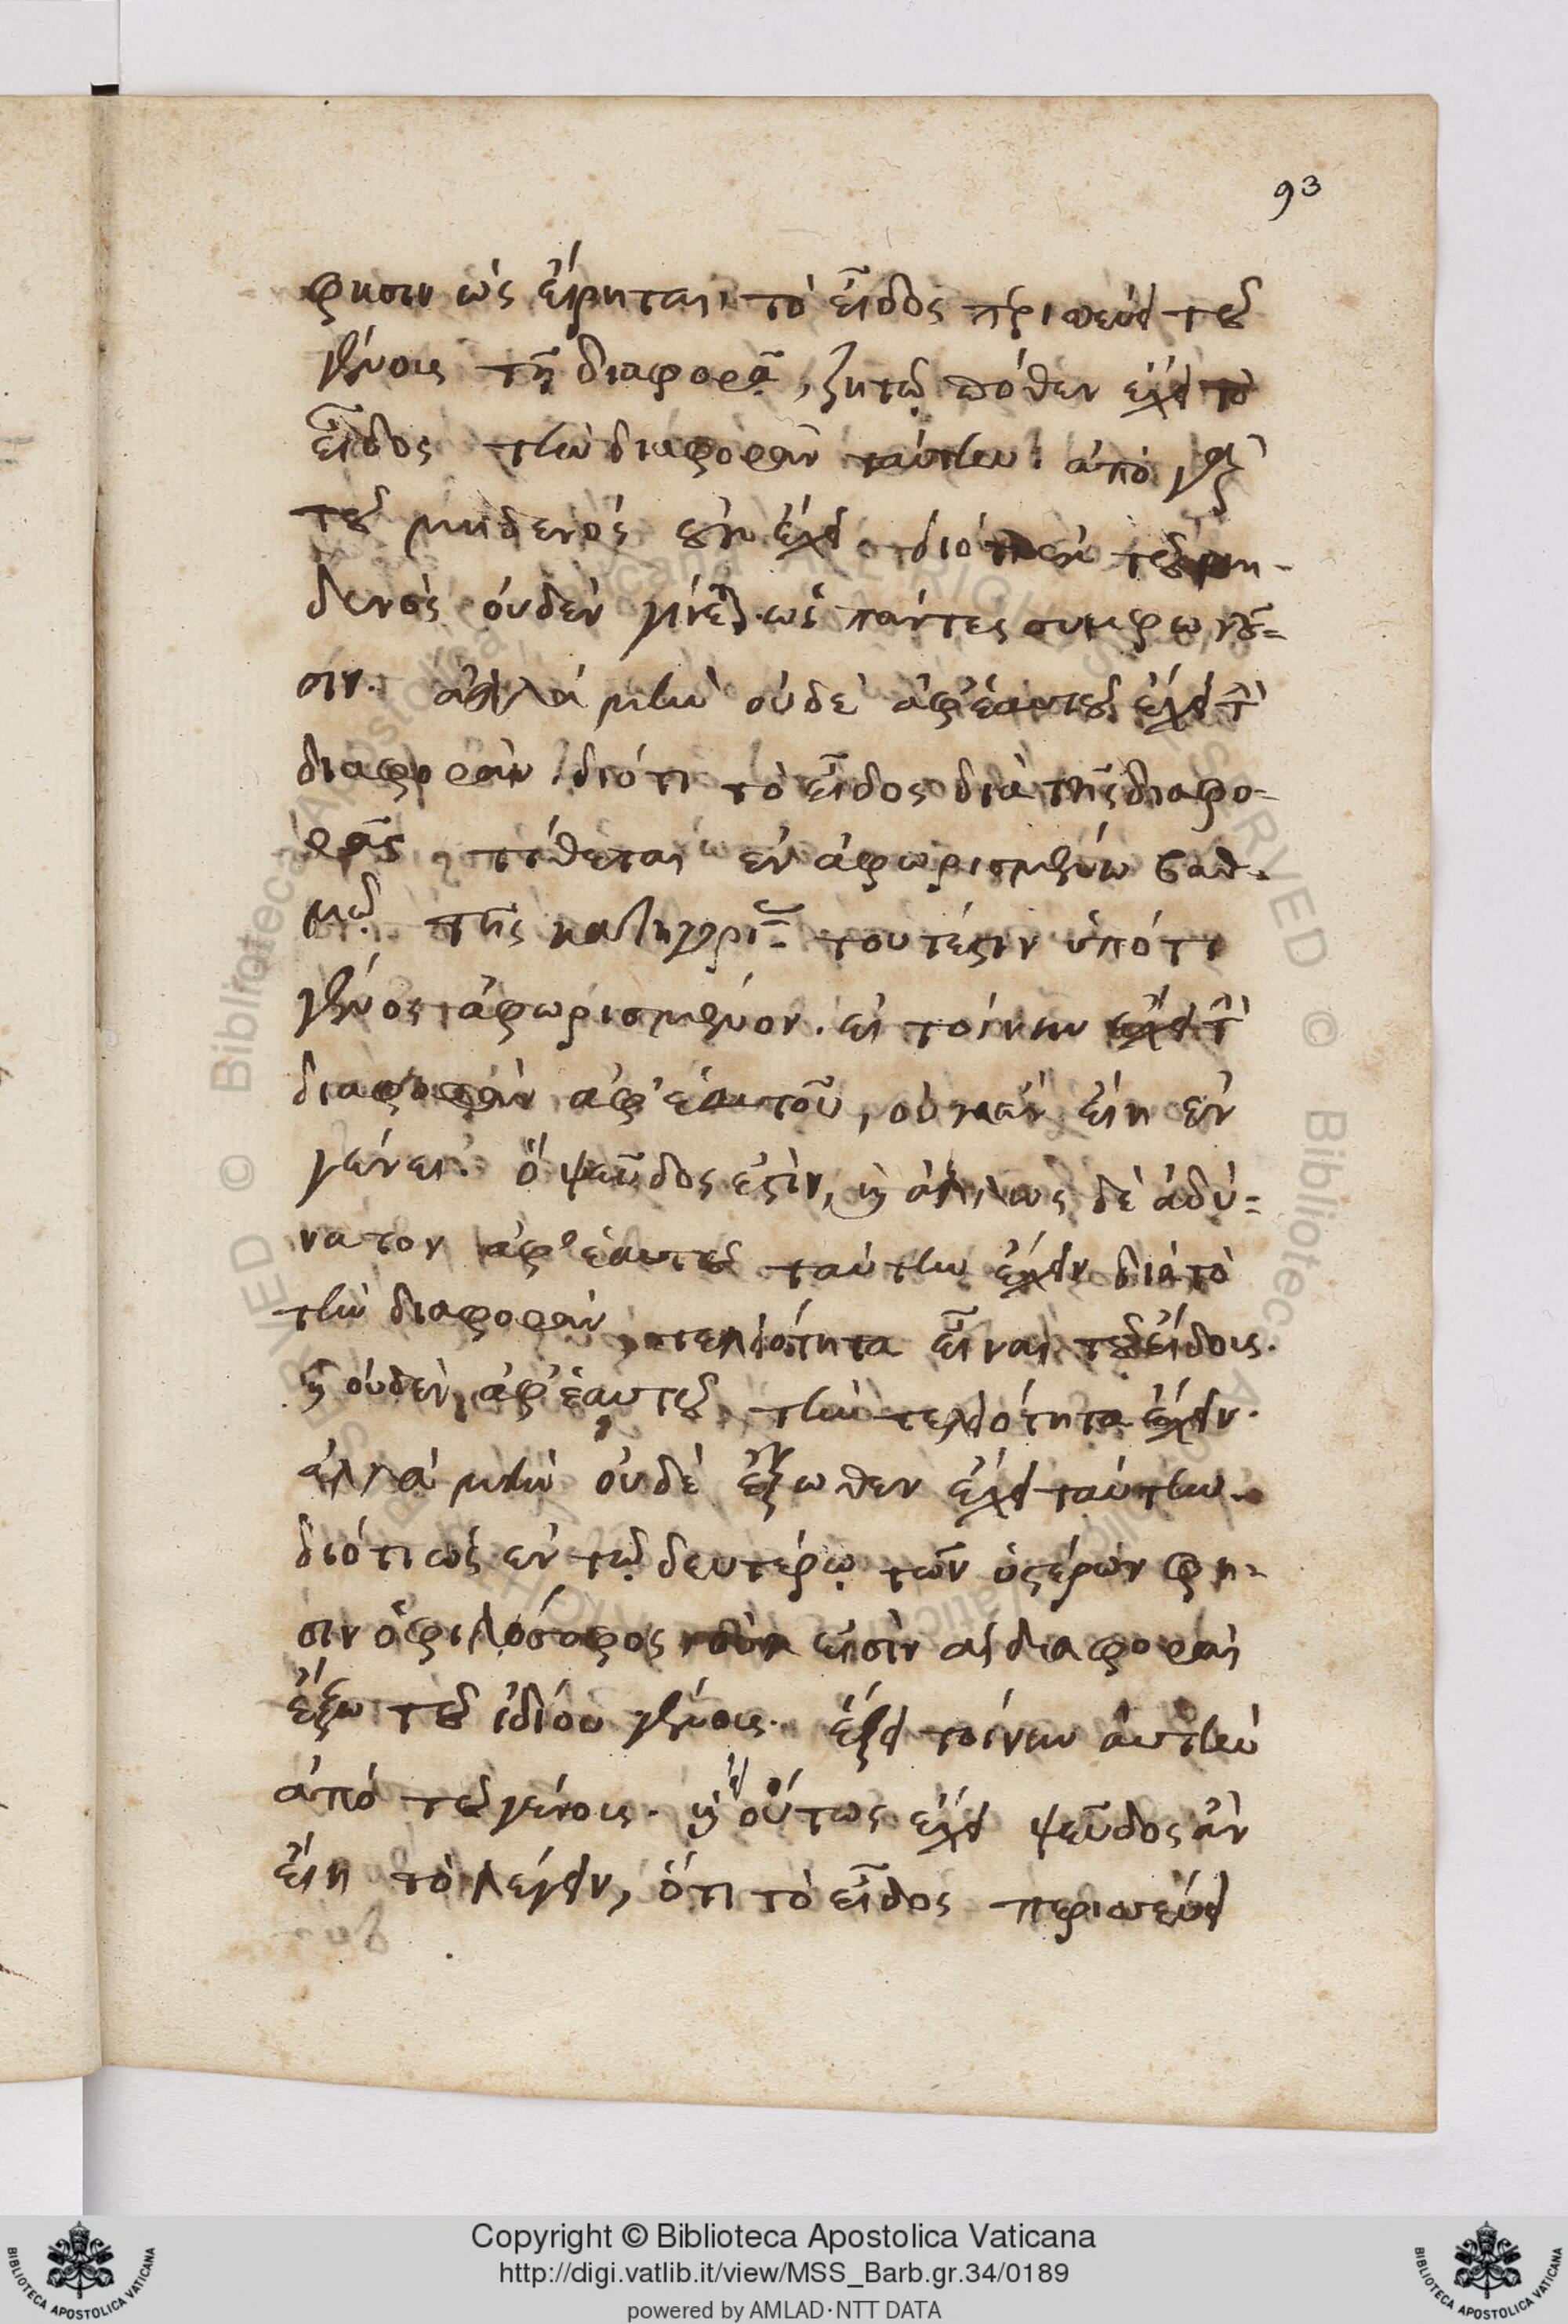 93
φησιν ὡς εἴρηται, τὸ εἶδος περισεύει τοῦ
γένους τῇ διαφορᾷ, ζητῶ πόθεν ἔχει τὸ
εἶδος τὴν διαφορὰν ταύτην. ἀπὸ γὰρ
τοῦ μηδενὸς οὐκ ἔχει. διότι ἐκ τοῦ μη-
δενὸς οὐδὲν γίνεται. ὡς πάντες συμφωνοῦ=
σιν. ἀλλὰ μὴν οὐδὲ ἀφ' ἑαυτοῦ ἔχει τὴν
διαφορὰν. διότι τὸ εἶδος διὰ τῆς διαφο-
ρᾶς, τίθεται ἐν ἀφωρισμένω βαθ-
μῷ τῆς κατηγορίας τουτέστιν ὑπό τι
γένος ἀφωρισμένον. εἰ τοίνυν ἔχει τὴν
διαφορὰν ἀφ' ἑαυτοῦ, οὐκ ἂν εἴη ἐν
γένει. ὃ ψεῦδος ἐστὶν, καὶ ἄλλως δὲ ἀδύ=
νατον ἀφ' ἑαυτοῦ ταύτην ἔχειν διὰ τὸ
τὴν διαφορὰν, τελειότητα εἶναι τοῦ εἴδους.
καὶ οὐδὲν ἀφ' ἑαυτοῦ τὴν τελειότητα ἔχειν.
ἀλλὰ μὴν οὐδὲ ἔξωθεν ἔχει ταύτην.
διότι ὡς ἐν τῷ δευτέρῳ τῶν ὑστέρων φη-
σιν ὁ φιλόσοφος οὐκ εἰσὶν αἱ διαφοραὶ
ἔξω τοῦ ἰδίου γένους. ἕξει τοίνυν αὐτὴν
ἀπὸ τοῦ γένους. καὶ εἰ οὕτως ἔχει ψεῦδος ἂν
εἴη τὸ λέγειν, ὅτι τὸ εἶδος περισεύει
Copyright © Biblioteca Apostolica Vaticana
http://digi.vatlib.it/view/MSS_Barb.gr.34/0189
powered by AMLAD·NTT DATA